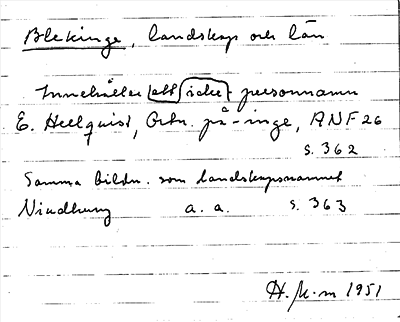 Blekinge, landskap och län
Innehåller ett icke personnamn
E. Hellquist, Ortn. på -inge, ANF 26
s. 362
Samma bildn. som landskapsnamnet
a. a. s. 363
1951